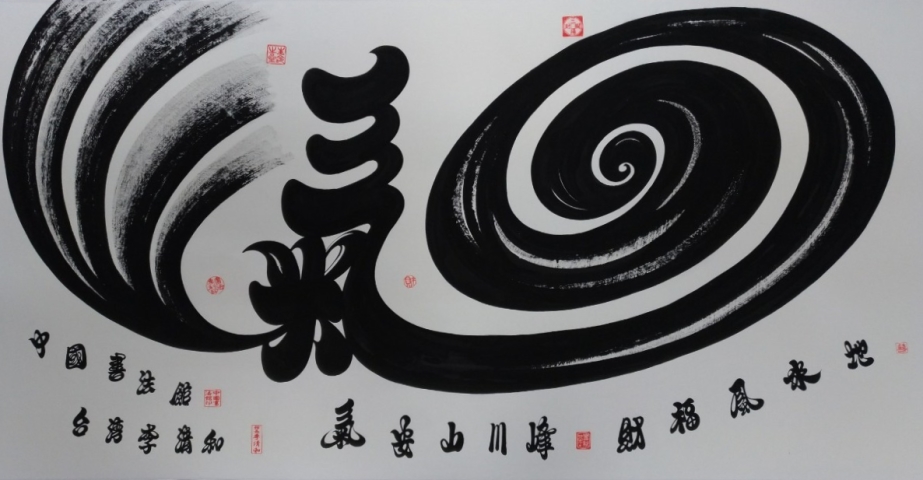 氣
中國書法館
台灣李清和
氣 山川峰
財福風水地